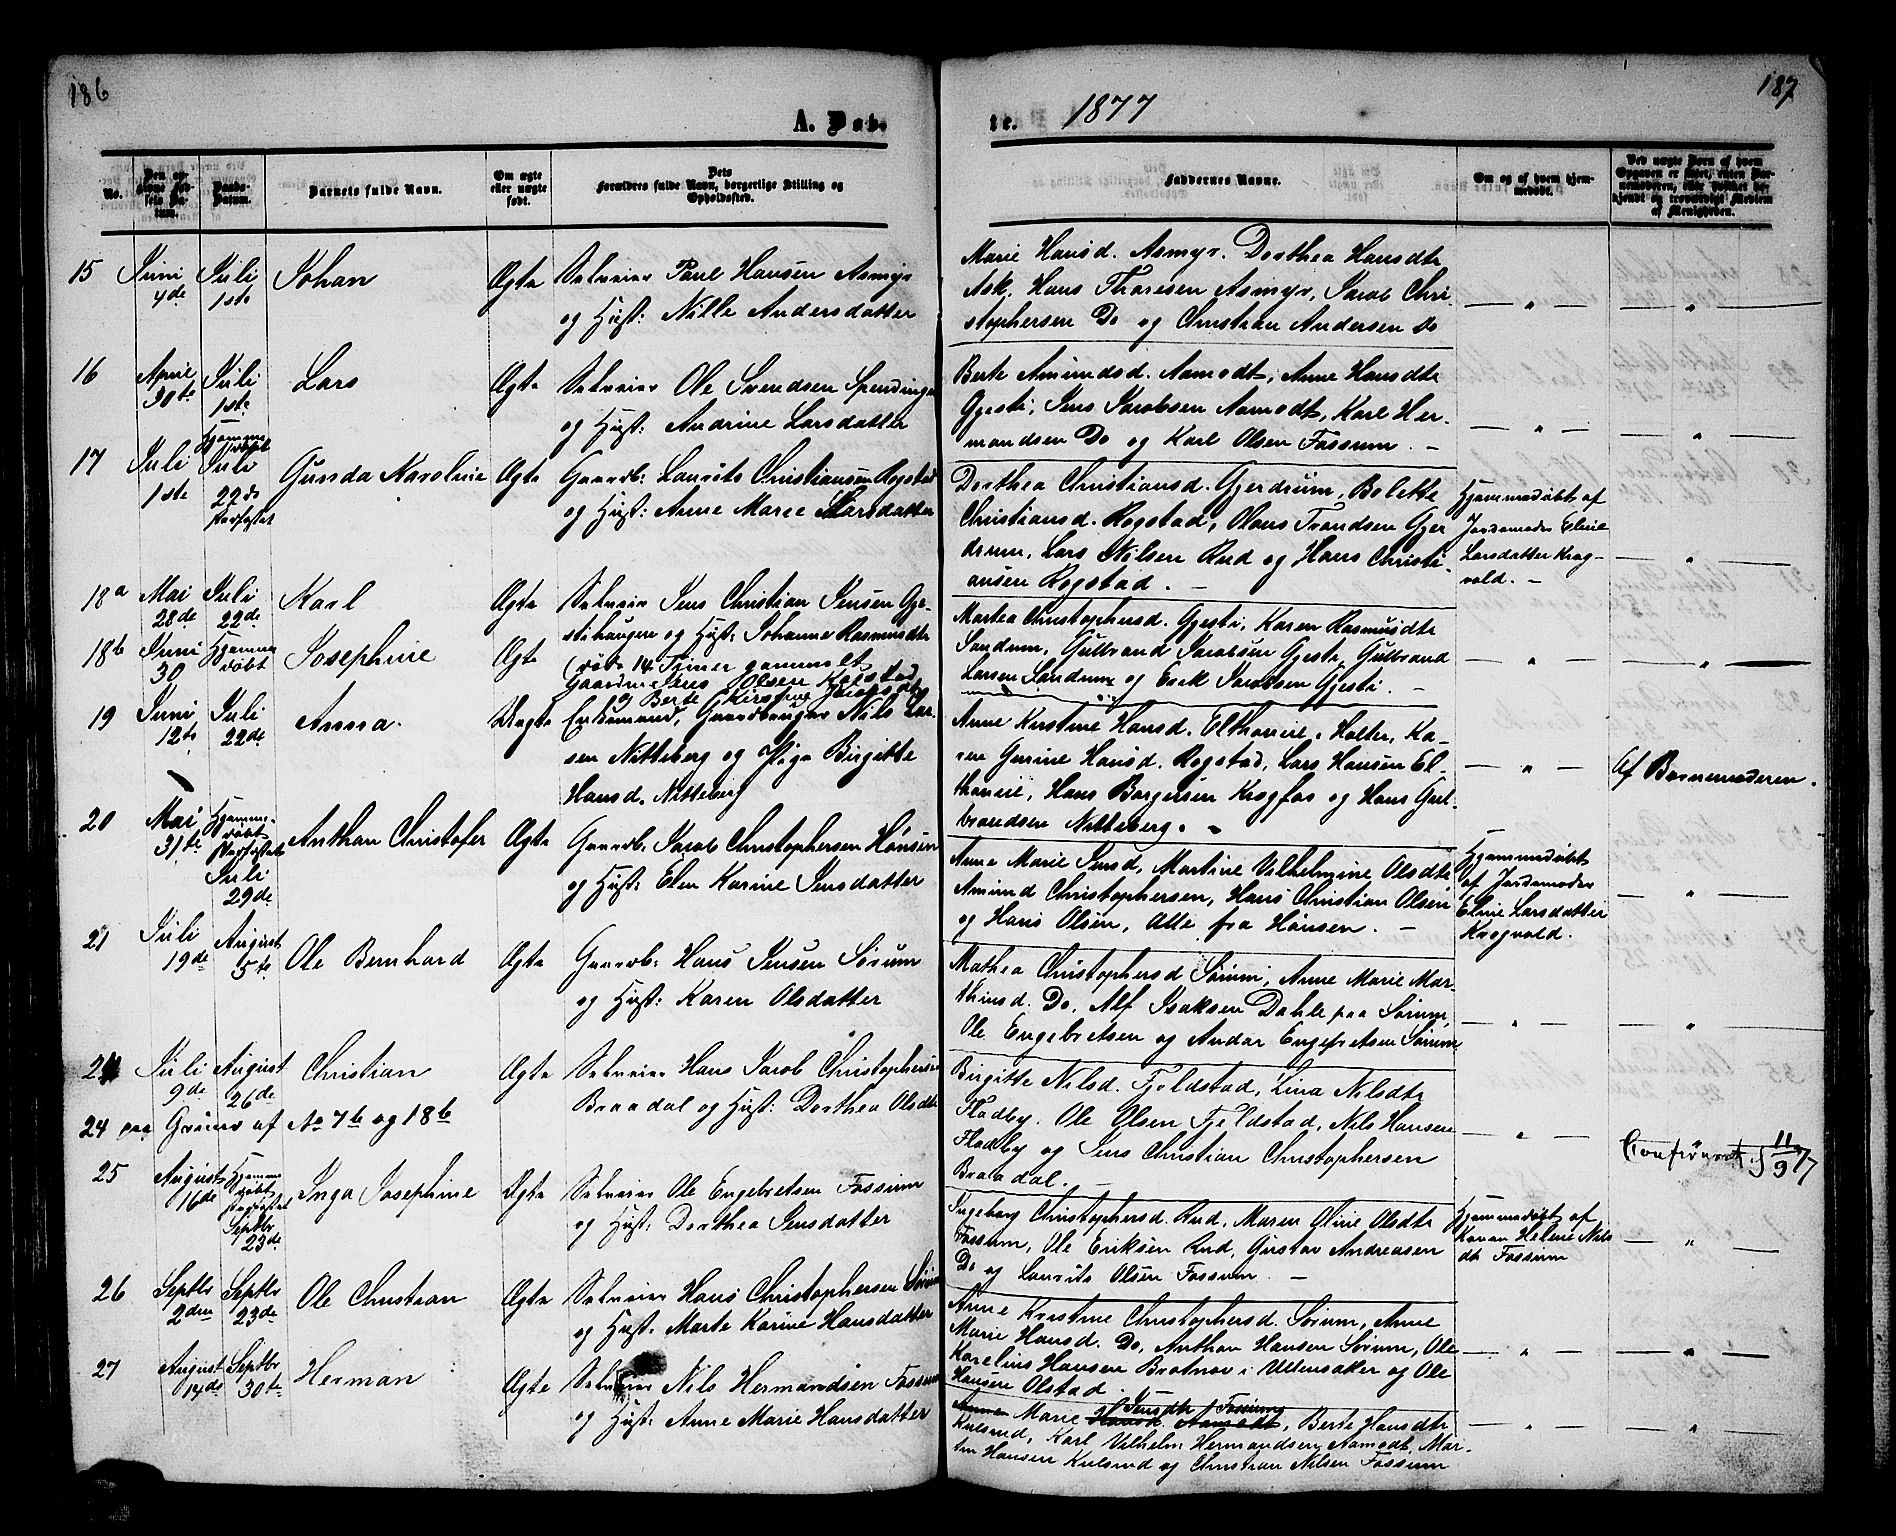 186
187
A. Døb-
te. 1877
No.
Den opgivne Fødsels Datum.
Daabs-Datum.
Barnets fulde Navn.
Om ægte eller uægte født.
Dets Forældres fulde Navn, borgerlige Stilling og Opholdssted.
Faddernes Navne.
Om og af hvem hjemmedøbt.
Ved uægte Børn af hvem Opgaven er skeet, enten Barnemoderen, eller hvilket bekjendt og troværdigt Medlem af Menigheden.
15 Juni 4de Juli 1ste Johan Ægte Selveier Paul Hansen Asmyr
og Hust: Nille Andersdatter
Marie Hansd. Asmyr. Dorthea Hansdtr
Ask. Hans Thoresen Asmyr, Jacob Chri-
stophersen Do og Christian Andersen Do
16 April 30te Juli 1ste Lars Ægte Selveier Ole Svendsen Spendingen
og Hust: Andrine Larsdatter
Berte Amundsd. Aamodt, Anne Hansdtr
Gjesti, Jens Jacobsen Aamodt, Karl Her-
mandsen Do og Karl Olsen Fossum. —
17 Juli 1ste Hjemmedøbt Juli 22de stadfæstet Gunda Karoline Ægte Gaardb: Laurits Christiansen Rogstad
og Hust: Anne Marie Larsdatter
Dorthea Christiansd. Gjerdrum, Bolette
Christiansd. Rogstad, Olaus Trondsen Gjer-
drum, Lars Nilsen Rud og Hans Christi-
ansen Rogstad. —
Hjemmedøbt af
Jordemoder Eline
Larsdatter Krog-
vold. —
18a Mai 28de Juli 22de Karl Ægte Selveier Jens Christian Jensen Gje-
stihaugen og Hust: Johanne Rasmusdtr
18b Juni 30 Hjemmedøbt Josephine Ægte (død 14 Timer gammelt
Gaardm. Jens Olsen Kolstad
og Berte Kirstine Jacobsdtr
Martea Christophersd. Gjesti, Karen Rasmusdtr
Sandum, Gulbrand Jacobsen Gjesti, Gulbrand
Larsen Sandum og Erik Jacobsen Gjesti. —
19 Juni 12te Juli 22de Anna. Uægte Enkemand, Gaardbruger Nils Lar-
sen Nitteberg og Pige Birgitte
Hansd. Nitteberg
Anne Kirstine Hansd. Elthonie. Holter, Ka-
ren Gurine Hansd. Rogstad, Lars Hansen El-
thonie, Hans Borgersen Krogfos og Hans Gul-
brandsen Nitteberg.
Af Barnemoderen.
20 Mai 31te Hjemmedøbt Stadfæstet Juli 29de Anthon Christofer Ægte Gaardb. Jacob Christophersen Hønsen
og Hust: Elen Karine Jensdatter
Anne Marie Jensd, Martine Vilhelmine Olsdtr,
Amund Christophersen, Hans Christian Olsen
og Hans Olsen, Alle fra Hønsen. —
Hjemmedøbt
af Jordemoder
Eline Larsdatter
Krogvold.
21 Juli 19de August 5te Ole Bernhard Ægte Gaardb: Hans Jensen Sørum
og Hust: Karen Olsdatter
Mathea Christophersd Sørum, Anne Marie Mar-
thinsd. Do, Alf Isaksen Dahle paa Sørum,
Ole Engebretsen og Andor Engebretsen Sørum
Juli 9de August 26de Christian Ægte Selveier Hans Jacob Christophersen
Braadal og Hust: Dorthea Olsdtr
Birgitte Nilsd. Fjeldstad, Lina Nilsdtr
Fladby. Ole Olsen Fjeldstad, Nils Hansen
Fladby og Jens Christian Christophersen
Braadal. —
24 paa Grund af No 7b og 18b
25 August 16de Hjemmedøbt stadfæstet Septbr 23de Inga Josephine Ægte Selveier Ole Engebretsen Fossum
og Hust: Dorthea Jensdatter
Ingeborg Christophersd. Rud, Maren Oline Olsdtr
Fossum, Ole Eriksen Rud, Gustav Andreasen
Do og Laurits Olsen Fossum. —
Hjemmedøbt af
Karen Helene Nils
dt Fossum
26 Septbr 2den Septbr 23de Ole Christian Ægte Selveier Hans Christophersen Sørum
og Hust. Marte Karine Hansdatter
Anne Kristine Christophersd. Sørum, Anne
Marie Hansd. Do, Anthon Hansen Sørum, Ole
Karelius Hansen Brotnov i Ullensaker og Ole
Hansen Olstad.
27 August 14de Septbr 30te Herman Ægte Selveier Nils Hermandsen Fossum
og Hust: Anne Marie Hansdatter
Anne Marie Hansd. Aamodt, Jensdtr Fossum Berte Hansdtr
Kulsrud, Karl Vilhelm Hermandsen Aamodt, Mar-
tin Hansen Kulsrud og Christian Nilsen Fossum